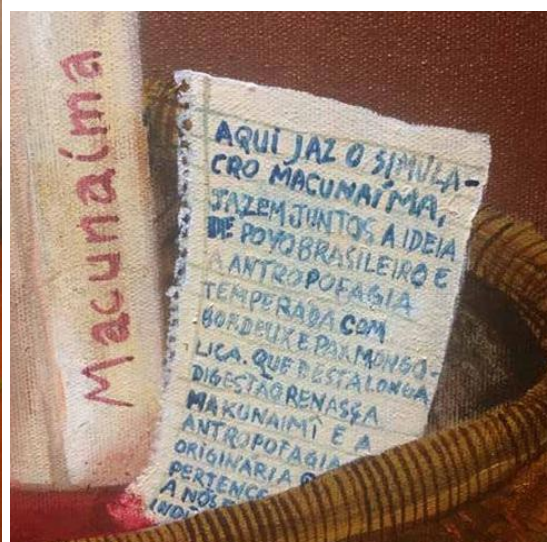 Macunaíma
AQUI JAZ O SIMULA-
CRO MACUNAÍMA,
JAZEM JUNTOS A IDEIA
DE POVO BRASILEIRO E
A ANTROPOFAGIA
TEMPERADA COM
BORDEUX E PAX MONGO-
LICA. QUE DESTA LONGA
DIGESTÃO RENASÇA
MAKUNAIMÎ E A
ANTROPOFAGIA
ORIGINÁRIA
PERTENCE
A NÓS